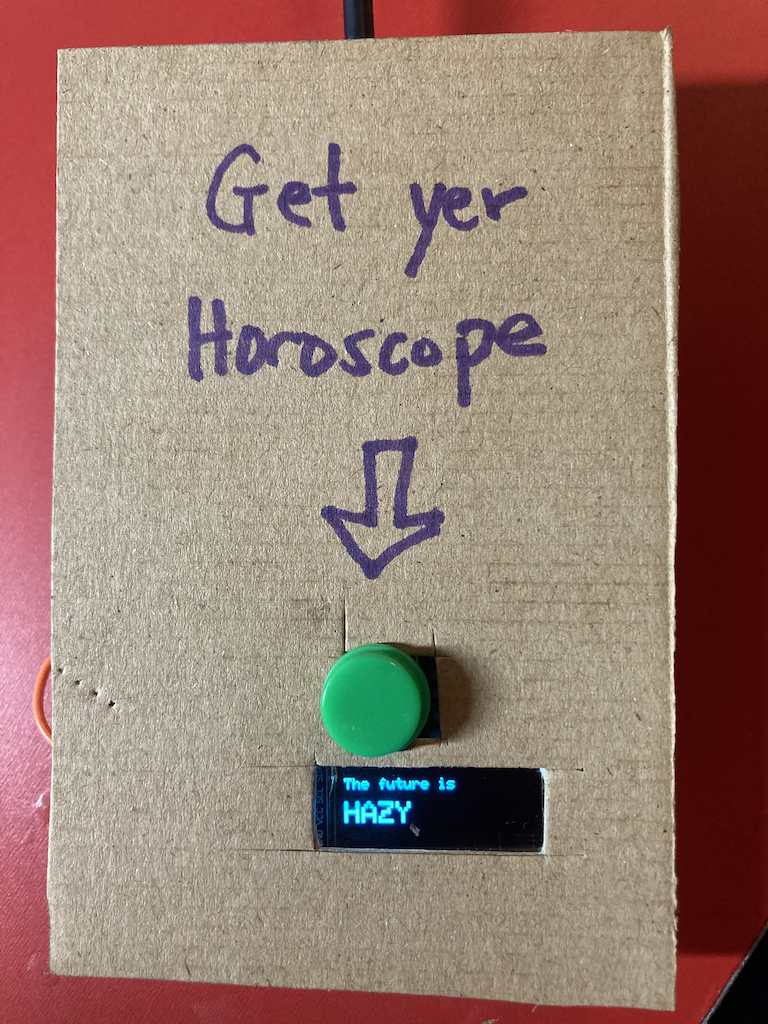 Get yer
Horoscope
The future is
HAZY